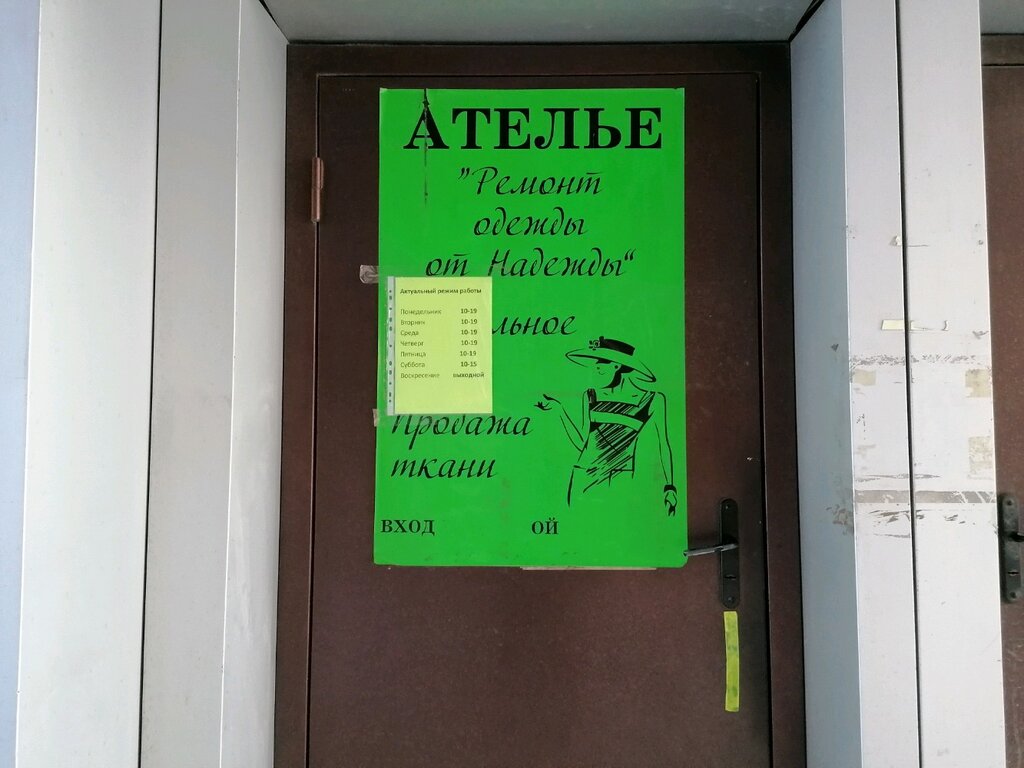 АТЕЛЬЕ
"Ремонт
одежды
от Надежды"
Актуальный режим работы
Понедельник 10-19
Вторник 10-19
Среда 10-19
Четверг 10-19
Пятница 10-19
Суббота 10-15
Воскресение выходной
льное
Продажа
ткани
ВХОД ОЙ